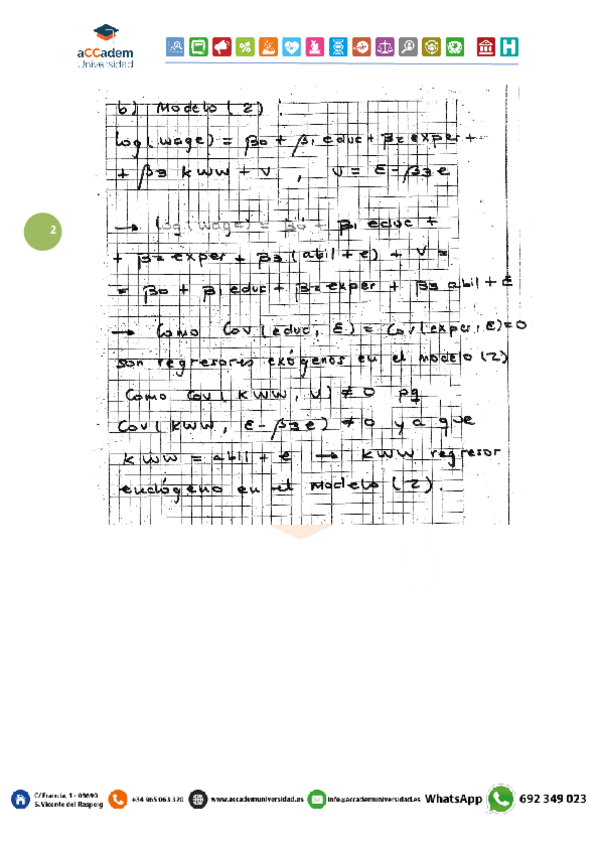 aCCadem
Universidad
b) Modelo (2)
log(wage) = β0 + β1 educ + β2 exper +
+ β3 kww + v , v = ε - β3 e
2
→ log(wage) = β0 + β1 educ +
+ β2 exper + β3 (abil + e) + v =
= β0 + β1 educ + β2 exper + β3 abil + ε
→ Como Cov(educ, ε) = Cov(exper, ε) = 0
son regresores exógenos en el modelo (2)
Como Cov( kww, v) ≠ 0 pq
Cov( kww, ε - β3 e) ≠ 0 ya que
kww = abil + e → kww regresor
endógeno en el modelo (2).
C/ Francia, 1 - 03690
S. Vicente del Raspeig
+34 965 063 320
www.accademuniversidad.es
info@accademuniversidad.es
WhatsApp
692 349 023